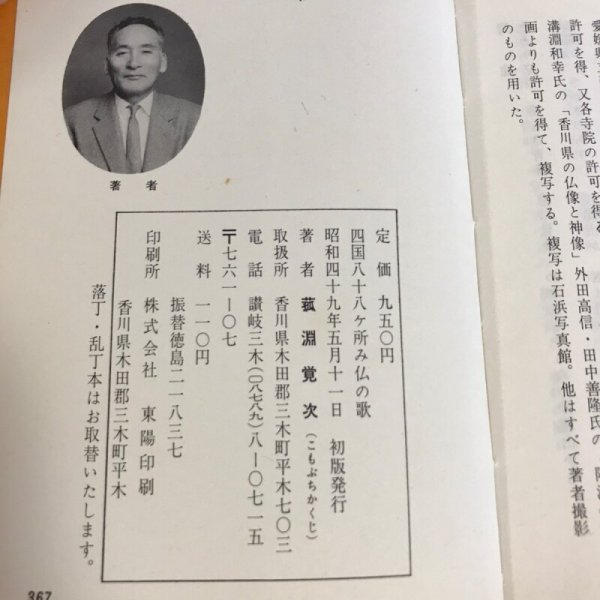 愛媛県
許可を得、又各寺院の許可を得る
溝淵和幸氏の「香川県の仏像と神像」外田高信・田中善隆氏の
画よりも許可を得て、複写する。複写は石浜写真館。他はすべて著者撮影
のものを用いた。
著者
定価 九五〇円
四国八十八ヶ所み仏の歌
昭和四十九年五月十一日 初版発行
著者 菰淵覚次(こもぶちかくじ)
取扱所 香川県木田郡三木町平木七〇三
電話 讃岐三木(〇八七八九)八―〇七一五
〒七六一―〇七
送料 一一〇円
振替徳島二一八三七
印刷所 株式会社 東陽印刷
香川県木田郡三木町平木
落丁・乱丁本はお取替いたします。
367